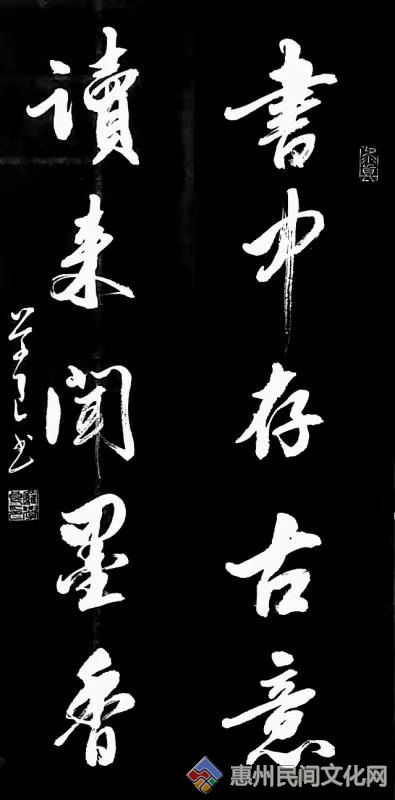 書中存古意
讀来聞墨香
书
惠州民间文化网